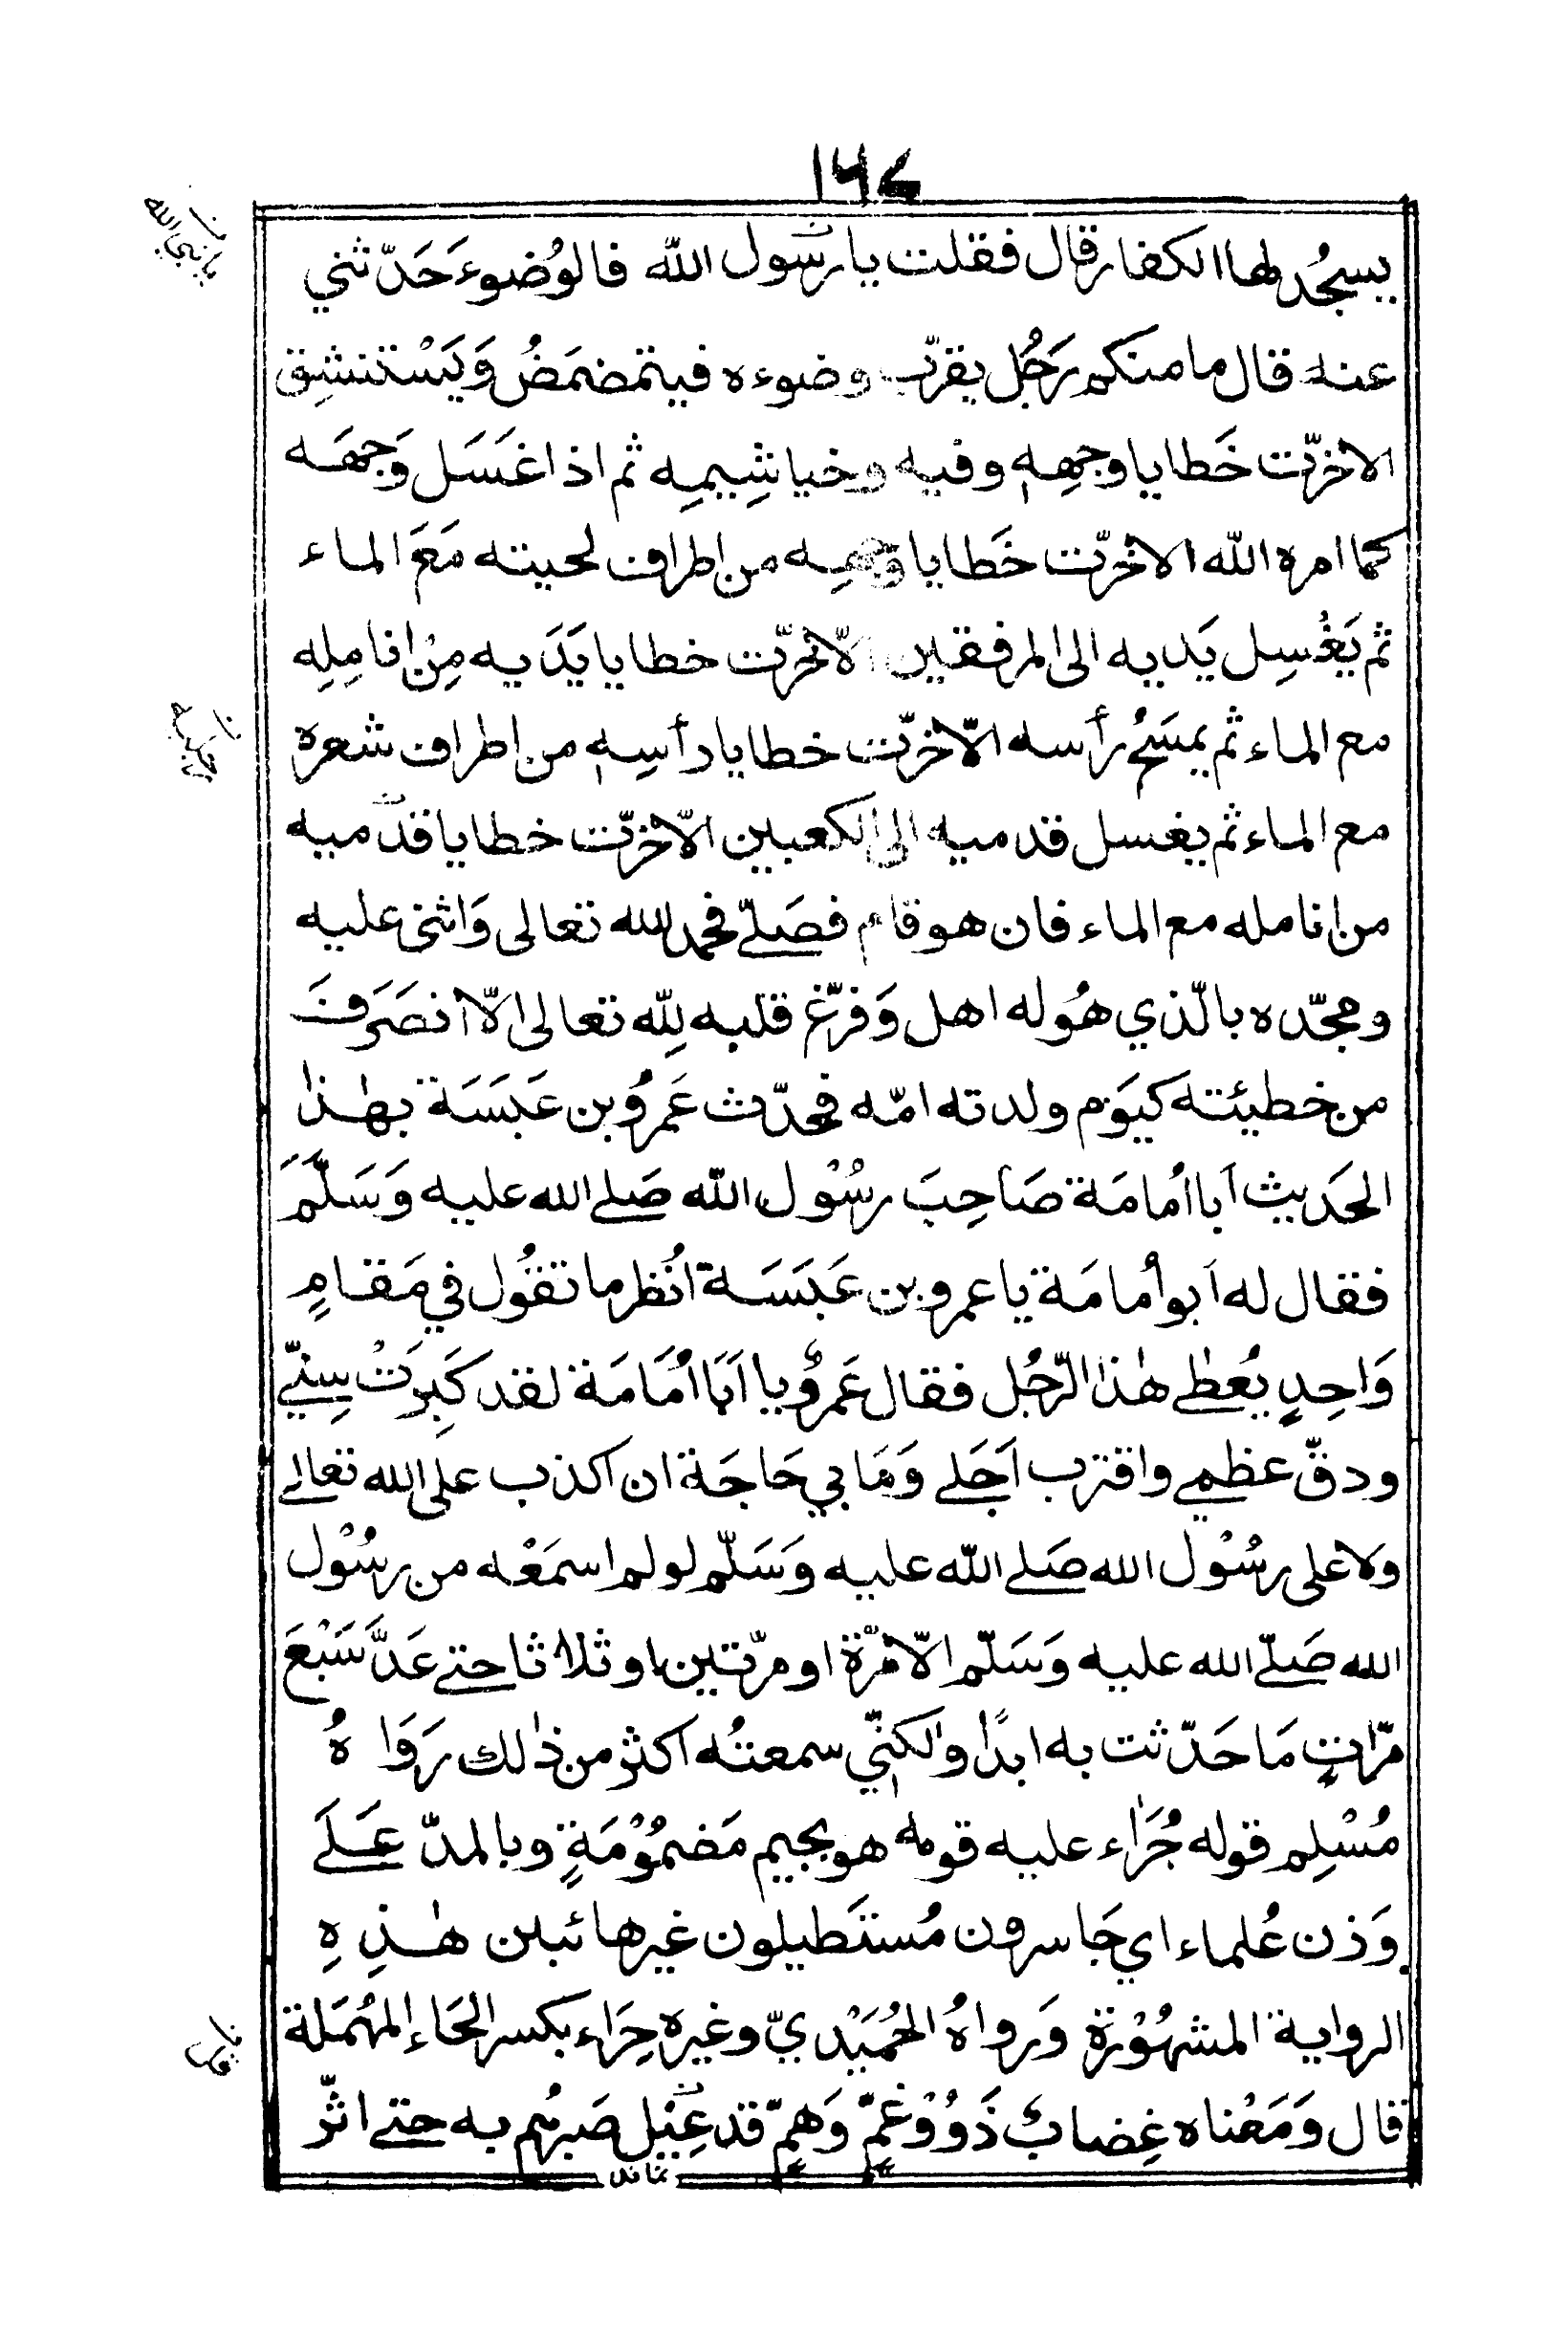 ١٦٤
يسجُد لها الكفار قال فقلت يا رسول الله فالوُضوءَ حَدّثني
عنه قال ما منكم رَجُل يقرّب وضوءه فيتمضمَضُ وَيَسْتنشِق
الاخرّت خَطايا وجهِهٖ وفيه وخياشِيمِه ثم اذا غَسَل وَجهَه
كما امره الله الاخرّت خَطايا وجهِه من اطراف لحيته مَعَ الماء
ثم يَغْسِل يَديه الى المرفقين الّاخرّت خطايا يَدَيه مِنْ انامِلِه
مع الماء ثم يمسَحُ رأسه الّاخرّت خطايا رأسِهٖ من اطراف شعره
مع الماء ثم يغسل قدميه الى الكعبين الّاخرّت خطايا قدميه
من انامله مع الماء فان هو قام فصَلّے فحمد الله تعالى وَاثنى عليه
ومجّده بالّذي هُو له اهل وَفرّغ قلبه لِلّه تعالى الّا انصَرَفَ
من خطيئته كيَوْم ولدته امّه فحدّث عَمرُو بن عَبَسَة بهٰذا
الحَديث اَبا اُمامَة صَاحِبَ رسُوْل الله صَلے الله عليه وَسَلَّمَ
فقال له اَبو اُمامَة يا عمرو بن عَبَسَة انُظر ما تقُول في مَقامٍ
وَاحِدٍ يُعطٰے هٰذا الرّجُل فقال عَمرٌو يا اَبَا اُمَامَة لقد كَبِرَتْ سِنّے
ودقّ عظمے واقترب اَجَلے وَمَا بي حَاجَة ان اكذب على الله تعالے
ولا على رسُوْل الله صَلے الله عليه وَسَلّم لو لم اسمَعْه من رسُوْل
الله صَلّے الله عليه وَسَلّم الّا مرّة او مرّتين او ثلاثا حتے عَدَّ سَبْعَ
مرّاتٍ مَا حَدّثت به ابدًا ولٰكنّي سمعتُه اكثر من ذٰلك رَوَاهُ
مُسْلِم قوله جُرَاٰء عليه قومه هو بجيم مَضمُوْمَةٍ وبالمدّ عَلَے
وَزن عُلماء اي جَاسرون مُستَطيلون غير هائبين هٰذِهِ
الرواية المشهُوْرة وَرواهُ الحُمَيْديّ وغيره حِرَاء بكسر الحَاء المهُمَلة
قال وَمَعْناه غِضاب ذَوُوْ غمٍّ وَهمٍّ قد عِيْل صَبرهُم به حتے اثّر
يا نبي الله